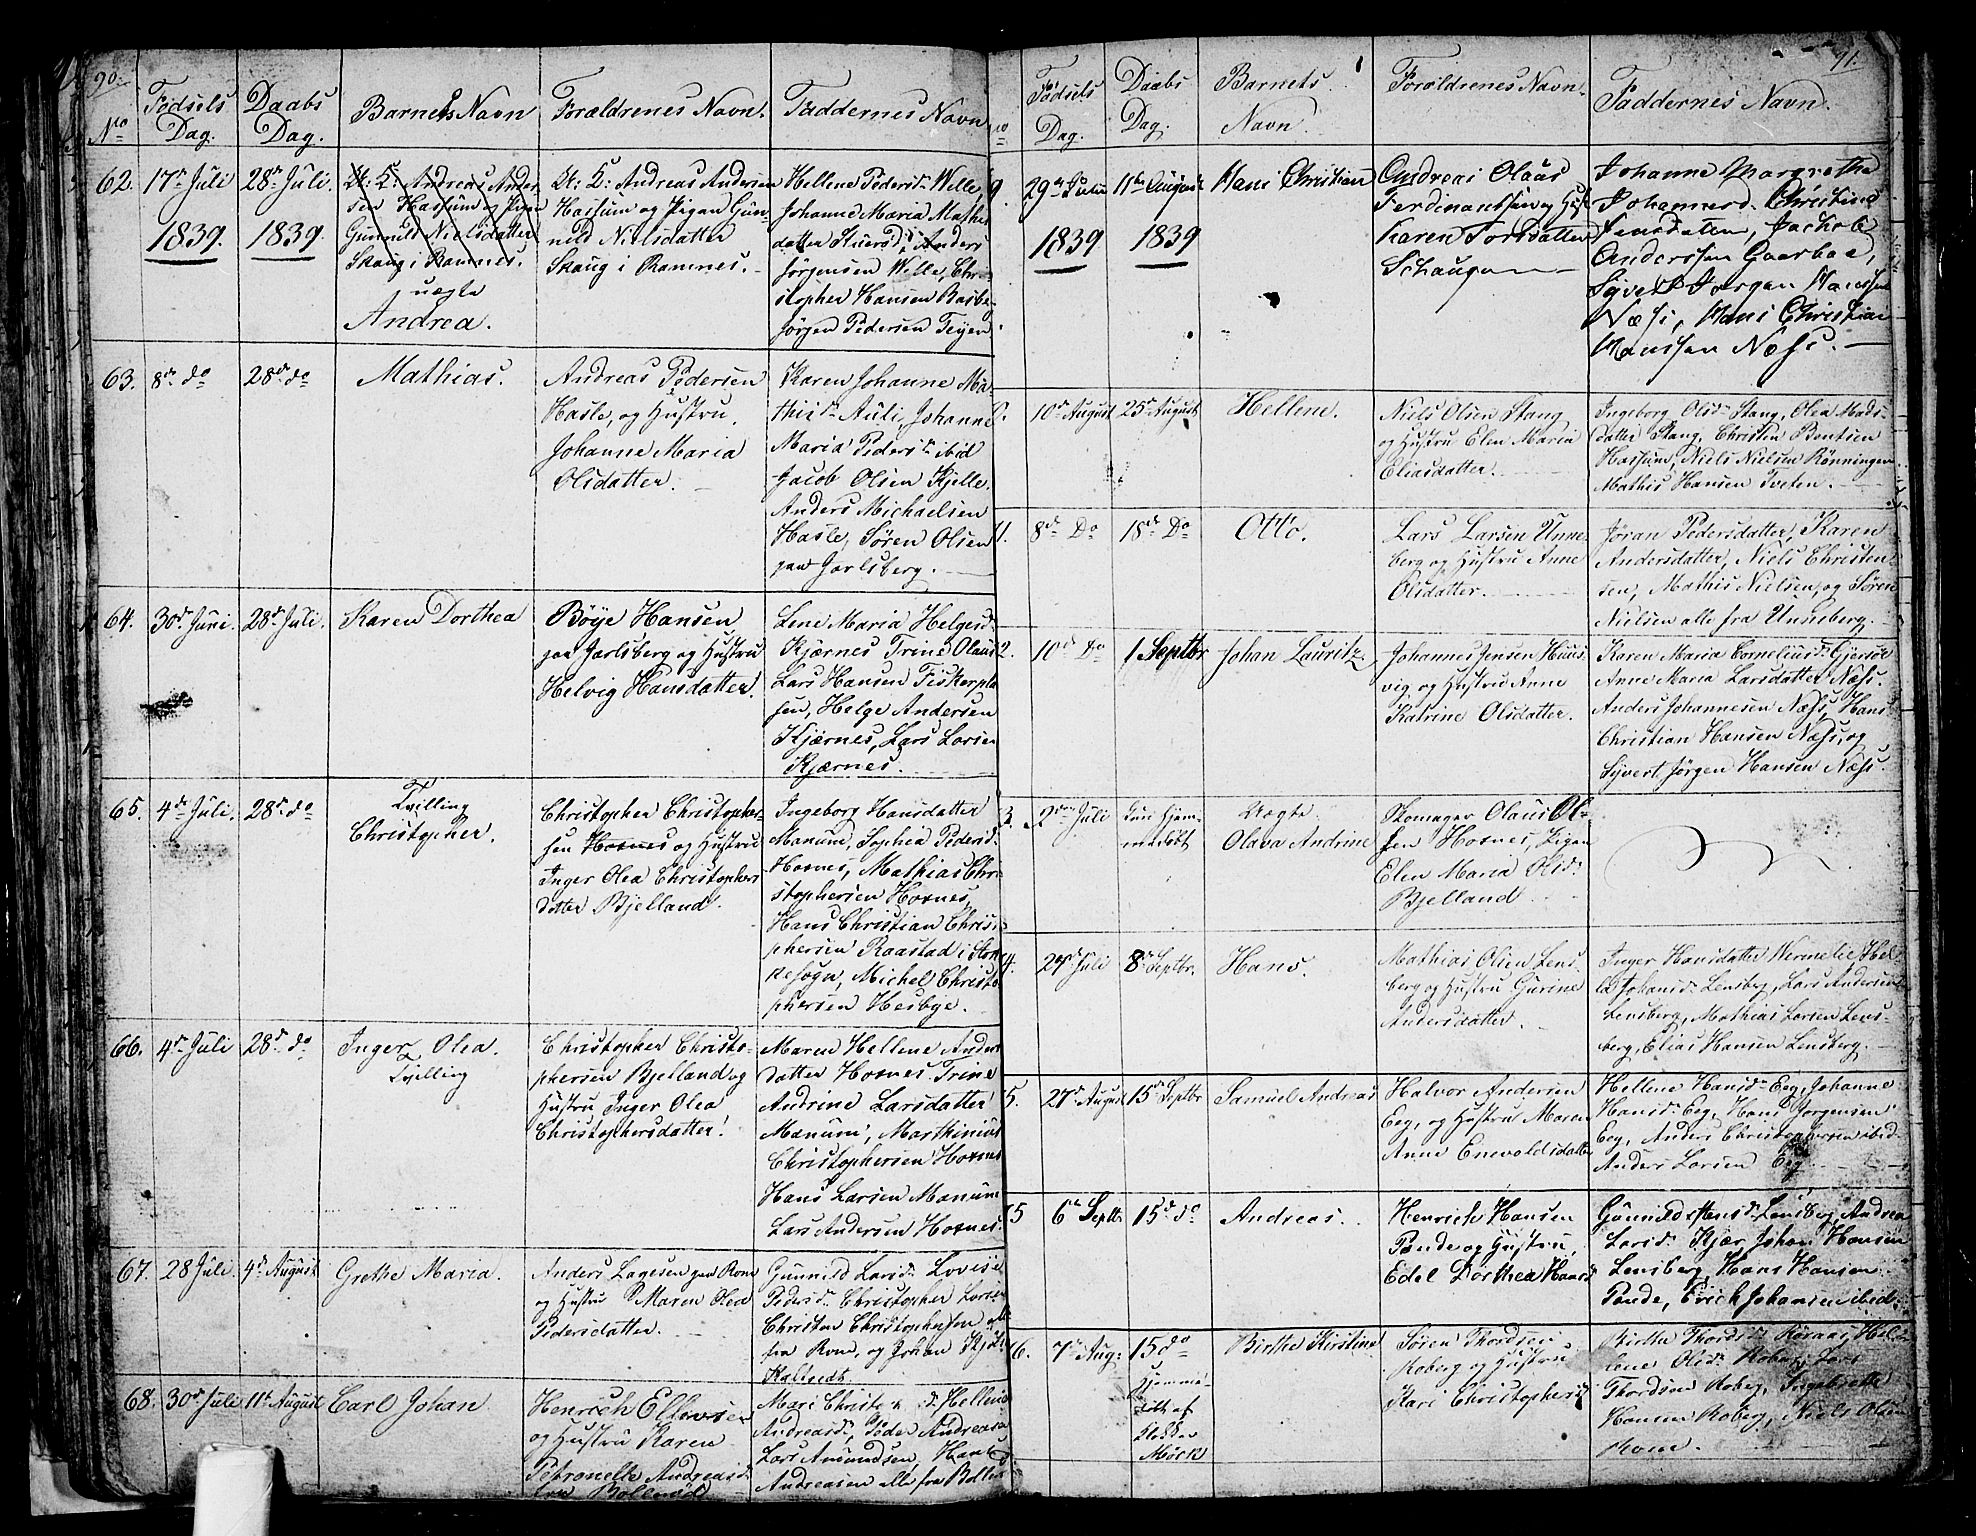 90.
No
Fødsels
Dag.
Daabs
Dag.
Barnets Navn
Forældrenes Navn.
Faddernes Navn
62.
17de Juli
1839.
28de Juli.
1839.
U: K: Andreas Ander-
sen Hassum og Pigen
Gunnild Nielsdatter
Skaug i Ramnes.
uægte
Andrea.
U: K: Andreas Andersen
Hassum og Pigen Gun-
nild Nielsdatter
Skaug i Ramnes.
Hellene Pedersd. Welle,
Johanne Maria Mathis
datter Anders
Jørgensen Welle, Chri-
stopher Hansen Basbe
Jørgen Pedersen Teyen
63.
8de do
28de do
Mathias.
Andreas Pedersen
Hasle, og Hustru
Johanne Maria
Olsdatter.
Karen Johanne Ma-
thisd. Auli, Johanne
Maria Pedersd. ibid
Jacob Olsen Kjelle.
Anders Michaelsen
Hasle, Søren Olsen
paa Jarlsberg.
64.
30d. Juni.
28de Juli.
Karen Dorthea
Bøye Hansen
paa Jarlsberg og Hustru
Helvig Hansdatter.
Lene Maria Helgesd.
Kjærnes, Trine Olausd
Lars Hansen Fiskerpla
sen, Helge Andersen
Kjærnes, Lars Larsen
Kjærnes.
65.
4de Juli.
28de do
Tvilling
Christopher.
Christopher Christopher-
sen Hosnes og Hustru
Inger Olea Christophers
datter Bjelland.
Ingeborg Hansdatter
Manum, Sophia Pedersd.
Hosnes, Mathias Chri-
stophersen Hosnes,
Hans Christian Christo
phersen Raastad i Stok
kesogn, Michel Christo
phersen Hesbye.
66.
4de Juli
28de do
Inger Olea.
Tvilling
Christopher Christo-
phersen Bjelland og
Hustru Inger Olea
Christophersdatter.
Maren Hellene Anders
datter Hosnes, Trine
Andrine Larsdatter
Manum, Marthinius
Christophersen Hosnes
Hans Larsen Manum
Lars Andersen Hosnes.
67.
28 Juli.
4de August
Grethe Maria.
Anders Lagesen paa Rom
og Hustru Maren Olea
Pedersdatter.
Gunnild Larsd. Lovise
Pedersd. Christopher Larsen
Christen Christophersen alle
fra Rom, og Johan
68.
30de Juli
11te August
Carl Johan
Henrich Ellevsen
og Hustru Karen
Petronelle Andreasd.
fra Bollerød
Mari Hellene
Andreasd., Peder Andreasen
Lars Amundsen, Hans
Andreasen alle fra Bolle
91.
No
Fødsels
Dag.
Daabs
Dag.
Barnets
Navn.
Forældrenes Navn.
Faddernes Navn.
9.
29de Julii
1839
11te August
1839
Hans Christian
Andreas Olaus
Ferdinantsen og Hust
Karen Torsdatter
Schaugen
Johanne Margrethe
Johannesd. Christine
Jensdatter, Jachob
Anderssen Gaarboe,
Syvert Jørgen Hanssen
Næss, Hans Christian
Hanssen Næss.
10de August
25de August
Hellene.
Niels Olsen Stang
og Hustru Elen Maria
Eliasdatter.
Ingeborg Olsd. Stang, Olea Mads-
datter Stang, Christen Bentsen
Hassum, Niels Nielsen Rønningen
Mathis Hansen Tveten.
1.
8de Do
18de Do
Otto.
Lars Larsen Unne
berg og Hustru Anne
Olsdatter.
Jøran Pedersdatter, Karen
Andersdatter, Niels Christen-
sen, Mathis Nielsen, og Søren
Nielsen alle fra Unneberg.
2.
10de Do
1 Septbr
Johan Lauritz.
Johannes Jensen Huus
vig og Hustru Anne
Katrine Olsdatter.
Karen Maria Corneliusd. Gjersøe
Anne Maria Larsdatter Næss.
Anders Johannesen Næss, Hans
Christian Hansen Næss, og
Syvert Jørgen Hansen Næss.
3.
2den Juli
Juni hjem-
medøbt
Uægte
Olava Andrine
Skomager Olaus Ol-
sen Hosnes, Pigen
Elen Maria Olsd:
Bjelland
4.
29de Juli
8de Septbr.
Hans.
Mathias Olsen Lens-
berg og Hustru Gurine
Andersdatter.
Inger Hansdatter Wermelie, Hel
Johansd. Lensberg, Lars Andersen
Lensberg, Mathias Larsen Lens-
berg, Elias Hansen Lensberg.
5.
27de August
15de Septbr
Samuel Andreas
Halvor Andersen
Eeg, og Hustru Maren
Anne Enevoldsdatter
Hellene Hansd. Eeg, Johanne
Hansd. Eeg, Hans Jørgensen
Eeg, Anders Christophersen ibid
Anders Larsen Eeg
75
6te Septb
15de do
Andreas.
Henrich Hansen
Pande og Hustru
Edel Dorthea Hansd
Gunnild Lensberg, Andrea
Larsd. Kjær, Johan Hansen
Lensberg, Hans Hansen
Pande, Erich Johansen ibid.
76.
7de Aug:
15 do
hjemme-
døbt af
Klokker
Mørch
Birthe Kirstine
Søren Thordsen
Roberg og Hustru
Kari Christophersd
Birthe Thordsd. Hel-
lene Olsd. Roberg, Lars
Thordsen Roberg, Ingebreth
Hansen Roberg, Niels Olsen
Rom.